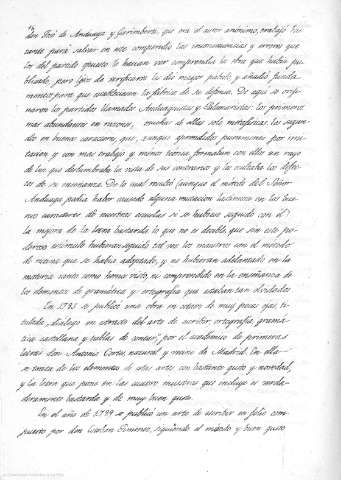 don José de Anduaga y Garimberti, que era el autor anónimo, trabajó bas
tante para salvar en este compendio las inconsecuencias y errores que
los del partido opuesto le hacian ver comprendia la obra que habia pu
blicado, pero lejos de verificarse le dió mayor pábulo y añadió funda
mentos para que combatiesen la fabrica de su defensa. De aqui se origi
naron los partidos llamados Anduaguistas y Palomaristas: los primeros
mas abundantes en razones, muchas de ellas solo metafisicas; los segun
dos en buenos caracteres, que, aunque aprendidos puramente por imi
tacion y con mas trabajo y menos teorica, formaban con ellos un rayo
de luz que deslumbraba la vista de sus contrarios y les ocultaba los defec
tos de su enseñanza. De lo cual resultó (aunque el método del Señor
Anduaga podia haber causado alguna mutacion lastimosa en los bue
nos caracteres de nuestras escuelas si se hubiese seguido con él)
la mejora de la letra bastarda lo que no es decible, que sin este po
deroso estímulo hubieran seguido tal vez los maestros con el método
de rutina que se habia adoptado, y no hubieran adelantado en la
materia tanto como hemos visto, ni comprendido en la enseñanza de
los elementos de gramática y ortografía que estaban tan olvidados.
En 1795 se publicó una obra en octavo de muy pocas ojas, ti
tulada, diálogo en extracto del arte de escribir, ortografía, gramá
tica castellana y tablas de contar, por el académico de primeras
letras don Antonio Cortés natural y vecino de Madrid. En ella
se tratan de los elementos de estas artes con bastante gusto y novedad,
y la letra que pone en las cuatro muestras que incluye es verda
deramente bastarda y de muy buen gusto.
En el año de 1799 se publicó un arte de escribir en folio com
puesto por don Esteban Ximenez, siguiendo el método y buen gusto